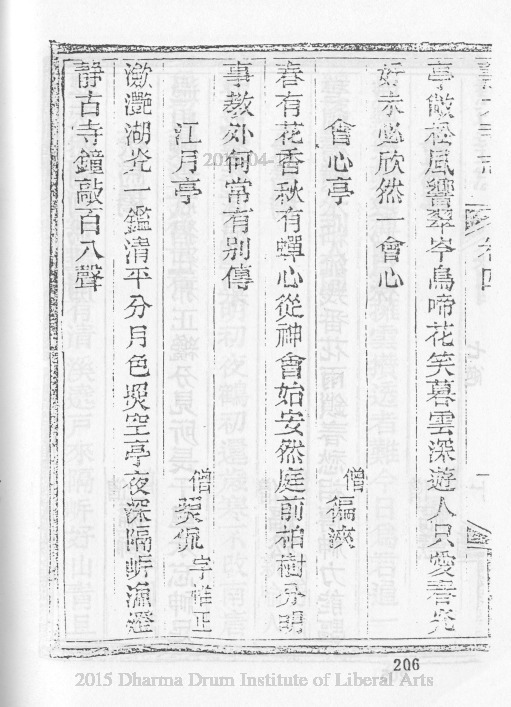 卷四
亭敞松風響翠岑鳥啼花笑暮雲深遊人只愛春光
好未必欣然一會心
會心亭 僧 徧浹
春有花香秋有蟬心從神會始安然庭前柏樹分明
事教外何常有別傳
江月亭 僧 侃 字惟正
瀲灧湖光一鑑清平分月色照空亭夜深隔岸漁燈
靜古寺鐘敲百八聲
206
2015 Dharma Drum Institute of Liberal Arts